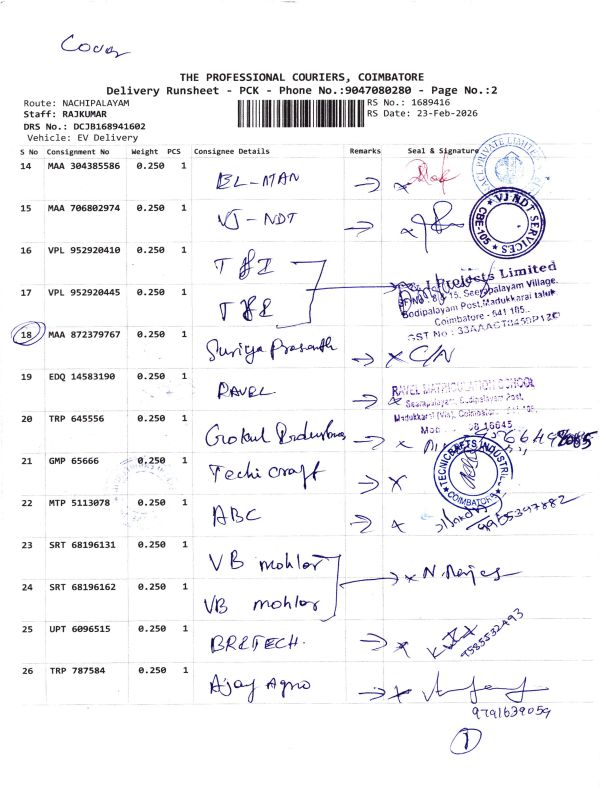 Cover
THE PROFESSIONAL COURIERS, COIMBATORE
Delivery Runsheet - PCK - Phone No.:9047080280 - Page No.:2
Route: NACHIPALAYAM RS No.: 1689416
Staff: RAJKUMAR RS Date: 23-Feb-2026
DRS No.: DCJB168941602
Vehicle: EV Delivery
S No Consignment No Weight PCS Consignee Details Remarks Seal & Signature
14 MAA 304385586 0.250 1 EL-MAN
15 MAA 706802974 0.250 1 VJ-NDT
VJ NDT SERVICES CBE-105
16 VPL 952920410 0.250 1
17 VPL 952920445 0.250 1
Projects Limited
15, Seerapalayam Village,
Bodipalayam Post, Madukkarai taluk,
Coimbatore - 641 105.
GST No :
18 MAA 872379767 0.250 1 Suriya Prasanth x C/N
19 EDQ 14583190 0.250 1 RAVEL
RAVEL MATRICULATION SCHOOL
Seerapalayam, Bodipalayam Post,
Madukkarai (Via), Coimbatore - 641 105.
20 TRP 645556 0.250 1 Gokul Industries
21 GMP 65666 0.250 1 Techi craft
TECNICRAFTS INDUSTRIES COIMBATORE
22 MTP 5113078 0.250 1 ABC
9965397882
23 SRT 68196131 0.250 1 VB mohlor
24 SRT 68196162 0.250 1 VB mohlor
x N. Rajes
25 UPT 6096515 0.250 1 BRETECH.
9585532493
26 TRP 787584 0.250 1 Ajay Agno
9791639059
1